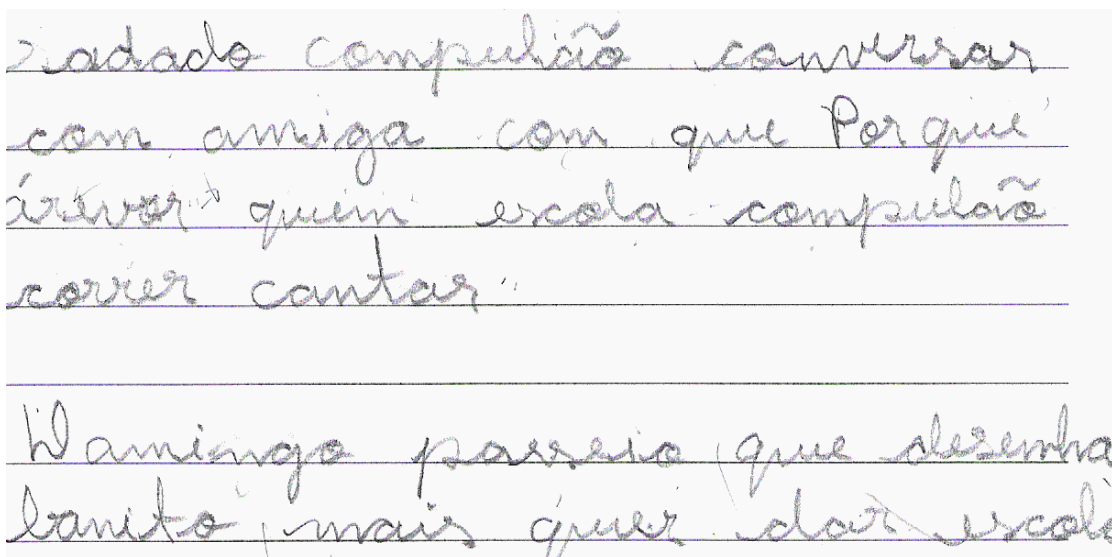 sadado compulsão conversar
com amiga com que Porque
árvor quem escola compulão
correr cantar
Domingo passeio que desenha
banito mais quer dar escola